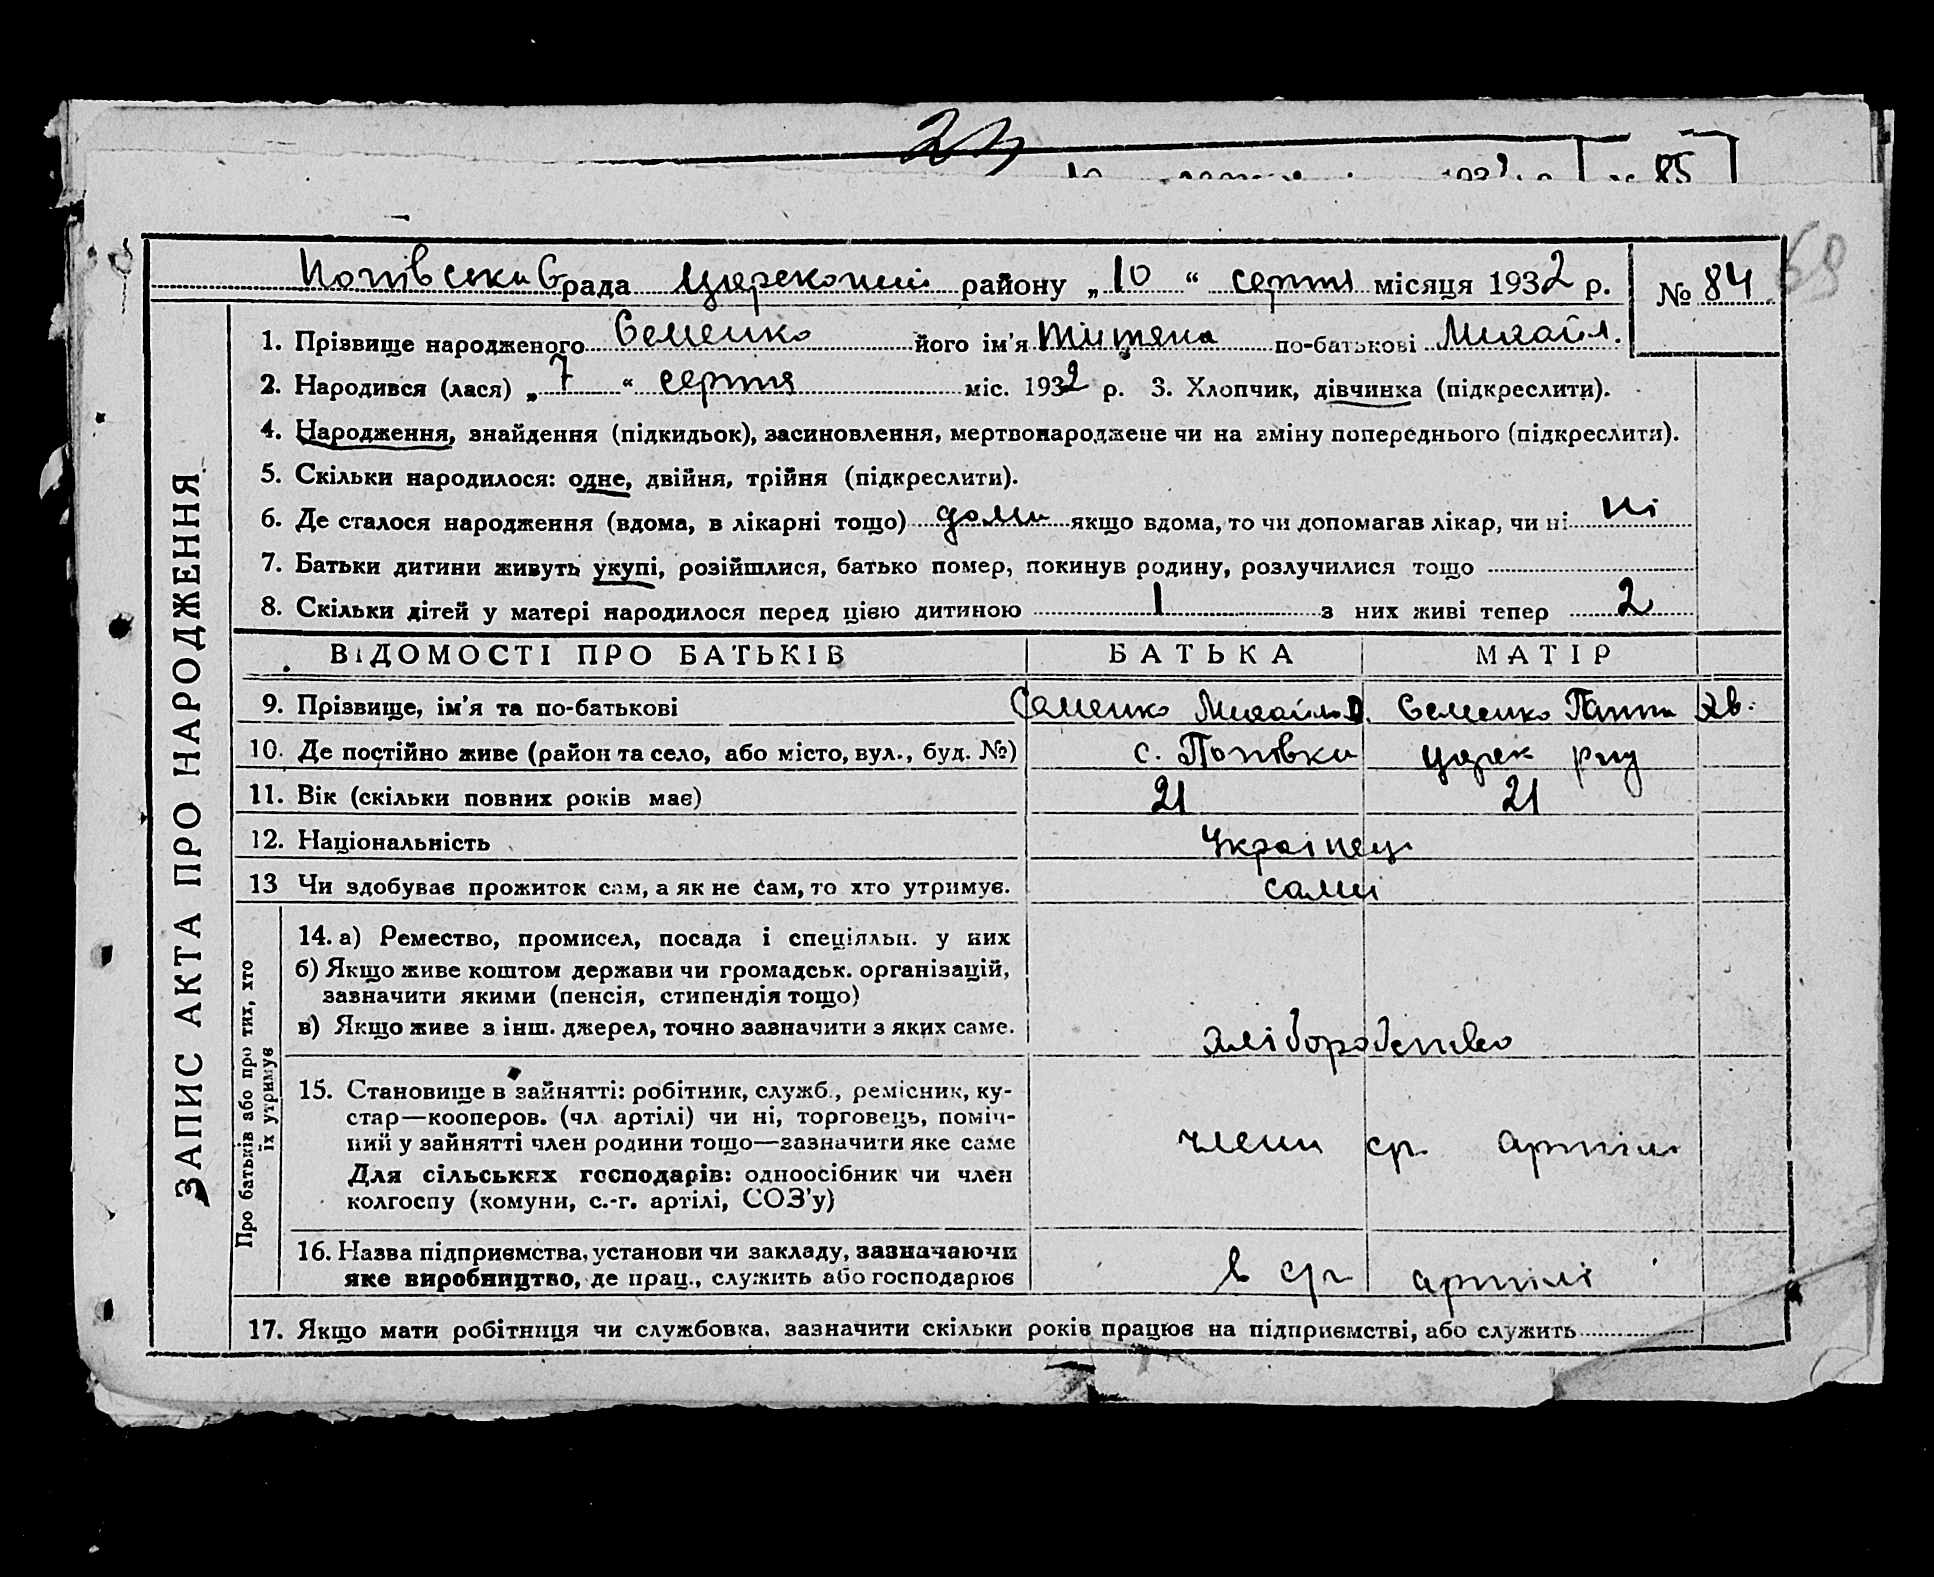 85
Попівська с рада Царекопські району „ 10 “ серпня місяця 1932 р. № 84
68
1. Прізвище народженого Семенко його ім'я Титяна по-батькові Михайл.
2. Народився (лася) „ 7 “ серпня міс. 1932 р. 3. Хлопчик, дівчинка (підкреслити).
4. Народження, знайдення (підкидьок), засиновлення, мертвонароджене чи на зміну попереднього (підкреслити).
5. Скільки народилося: одне, двійня, трійня (підкреслити).
6. Де сталося народження (вдома, в лікарні тощо) дома якщо вдома, то чи допомагав лікар, чи ні ні
7. Батьки дитини живуть укупі, розійшлися, батько помер, покинув родину, розлучилися тощо
8. Скільки дітей у матері народилося перед цією дитиною 1 з них живі тепер 2
ЗАПИС АКТА ПРО НАРОДЖЕННЯ
ВІДОМОСТІ ПРО БАТЬКІВ БАТЬКА МАТІР
9. Прізвище, ім'я та по-батькові Семенко Михайло Д. Семенко Ганна
10. Де постійно живе (район та село, або місто, вул., буд. №) с. Попівка царек рну
11. Вік (скільки повних років має) 21 21
12. Національність Українец
13 Чи здобував прожиток сам, а як не сам, то хто утримує. самі
Про батьків або про тих, хто
їх утримує
14. а) Ремество, промисел, посада і спеціяльн. у них
б) Якщо живе коштом держави чи громадськ. організацій,
зазначити якими (пенсія, стипендія тощо)
в) Якщо живе з інш. джерел, точно зазначити з яких саме. хліборобство
15. Становище в зайнятті: робітник, служб., ремісник, ку-
стар—кооперов. (чл артілі) чи ні, торговець, поміч-
ний у зайнятті член родини тощо—зазначити яке саме члени ср артіли
Для сільських господарів: одноосібник чи член
колгоспу (комуни, с.-г. артілі, СОЗ'у)
16. Назва підприємства, установи чи закладу, зазначаючи
яке виробництво, де прац., служить або господарює в ср артілі
17. Якщо мати робітниця чи службовка, зазначити скільки років працює на підприємстві, або служить